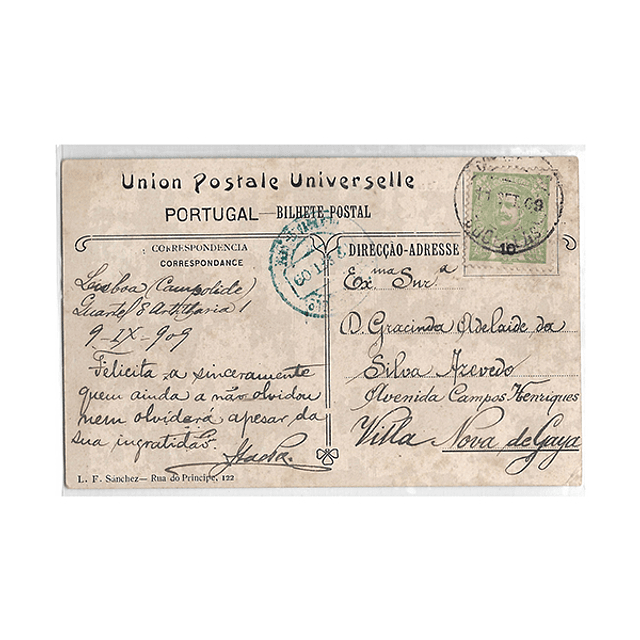 Union Postale Universelle
PORTUGAL—BILHETE-POSTAL
CORRESPONDENCIA
CORRESPONDANCE
Lisboa (Campolide)
Quartel Artilharia 1
9-IX-909
Felicita-a sinceramente
quem ainda a não olvidou
nem olviderá apesar da
sua ingratidão
L. F. Sanchez— Rua do Principe, 122
DIRECÇÃO-ADRESSE
Exma Sur.a
D. Gracinda Adelaide da
Silva Azevedo
Avenida Campos Henriques
Villa Nova de Gaya
10